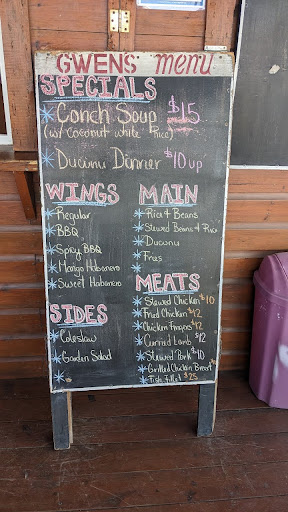 GWENS menu
SPECIALS
Conch Soup $15
(w/ Coconut white Rice)
Ducunu Dinner $10 up
WINGS
Regular
BBQ
Spicy BBQ
Mango Habanero
Sweet Habanero
SIDES
Coleslaw
Garden Salad
MAIN
Rice & Beans
Stewed Beans & Rice
Ducunu
Fries
MEATS
Stewed Chicken $10
Fried Chicken $12
Chicken Fingers $12
Curried Lamb $12
Stewed Pork $10
Grilled Chicken Breast
Fish Fillet $25